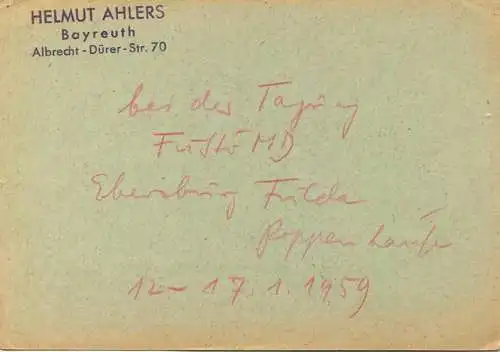 HELMUT AHLERS
Bayreuth
Albrecht-Dürer-Str. 70
bei der Tagung
FuStö MD
Ebersburg Fulda
Poppenhausen
12-17.1.1959